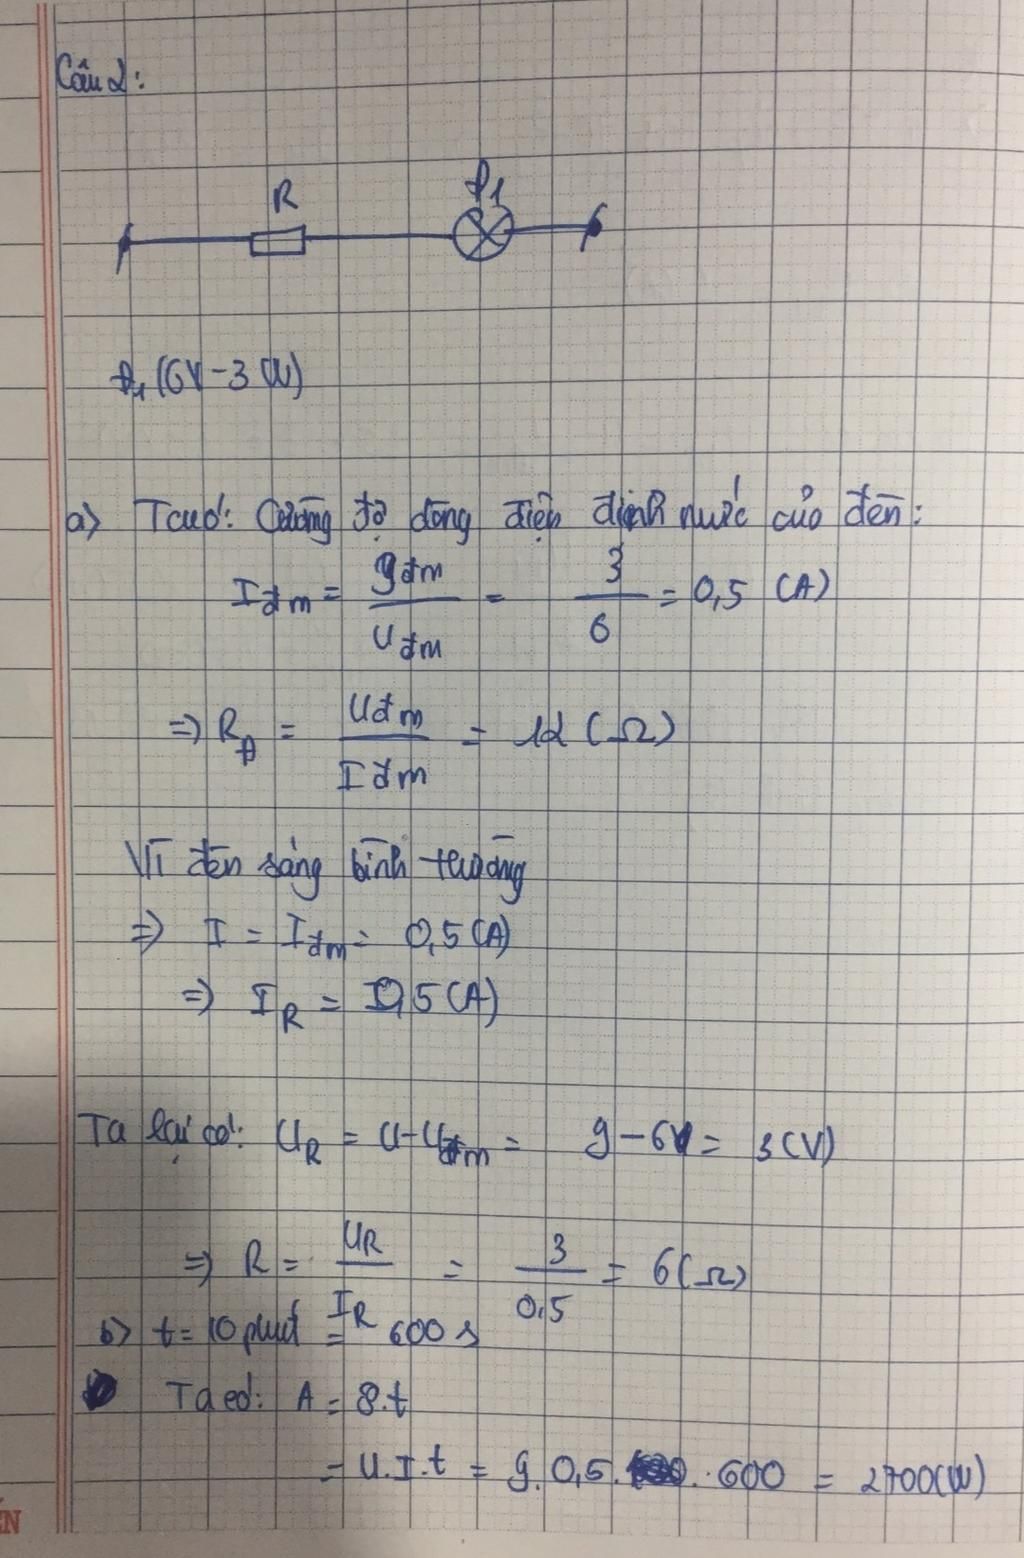 Câu 2:
R Đ1
Đ1 (6V - 3W)
a) Ta có: Cường độ dòng điện định mức của đèn:
Iđm = Pđm / Uđm = 3 / 6 = 0,5 (A)
=> RĐ = Uđm / Iđm = 12 (Ω)
Vì đèn sáng bình thường
=> I = Iđm = 0,5 (A)
=> IR = 0,5 (A)
Ta lại có: UR = U - Uđm = 9 - 6V = 3 (V)
=> R = UR / IR = 3 / 0,5 = 6 (Ω)
b) t = 10 phút = 600 s
Ta có: A = P.t
= U.I.t = 9. 0,5. 600 = 2700 (W)
ẾN